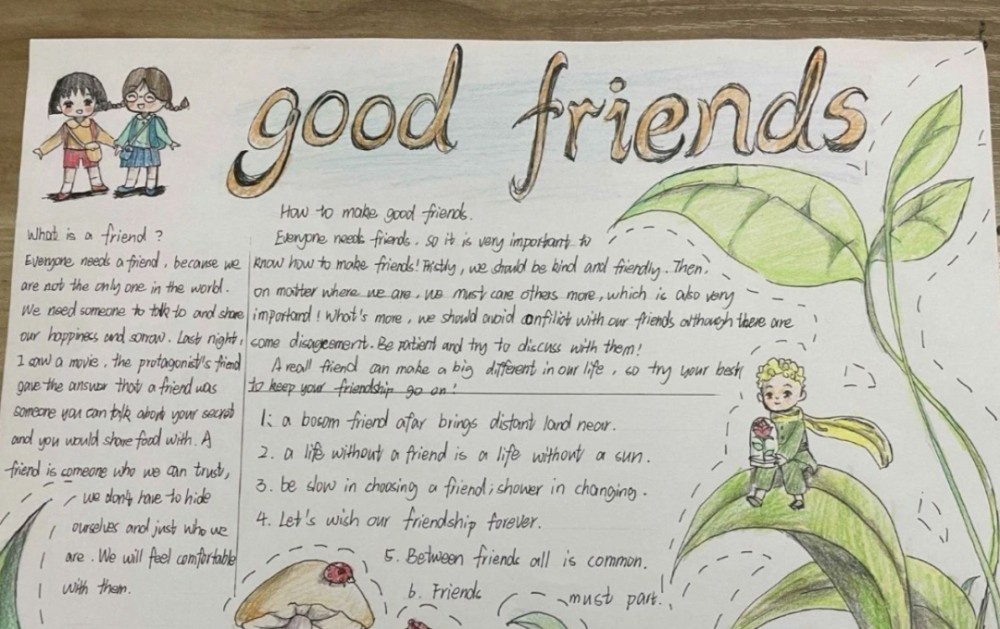 good friends
What is a friend ?
Everyone needs a friend, because we
are not the only one in the world.
We need someone to talk to and share
our happiness and sorrow. Last night,
I saw a movie, the protagonist's friend
gave the answer that a friend was
someone you can talk about your secret
and you would share food with. A
friend is someone who we can trust,
we don't have to hide
ourselves and just who we
are. We will feel comfortable
with them.
How to make good friends.
Everyone needs friends. so it is very important to
know how to make friends! Firstly, we should be kind and friendly. Then,
on matter where we are, we must care others more, which is also very
importand! What's more, we should avoid confiliot with our friends although there are
some disagreement. Be patient and try to discuss with them!
A reall friend can make a big different in our life, so try your best
to keep your friendship go on!
1: a bosom friend afar brings distant land near.
2. a life without a friend is a life without a sun.
3. be slow in choosing a friend; shower in changing.
4. Let's wish our friendship forever.
5. Between friends all is common.
6. Friends must part.